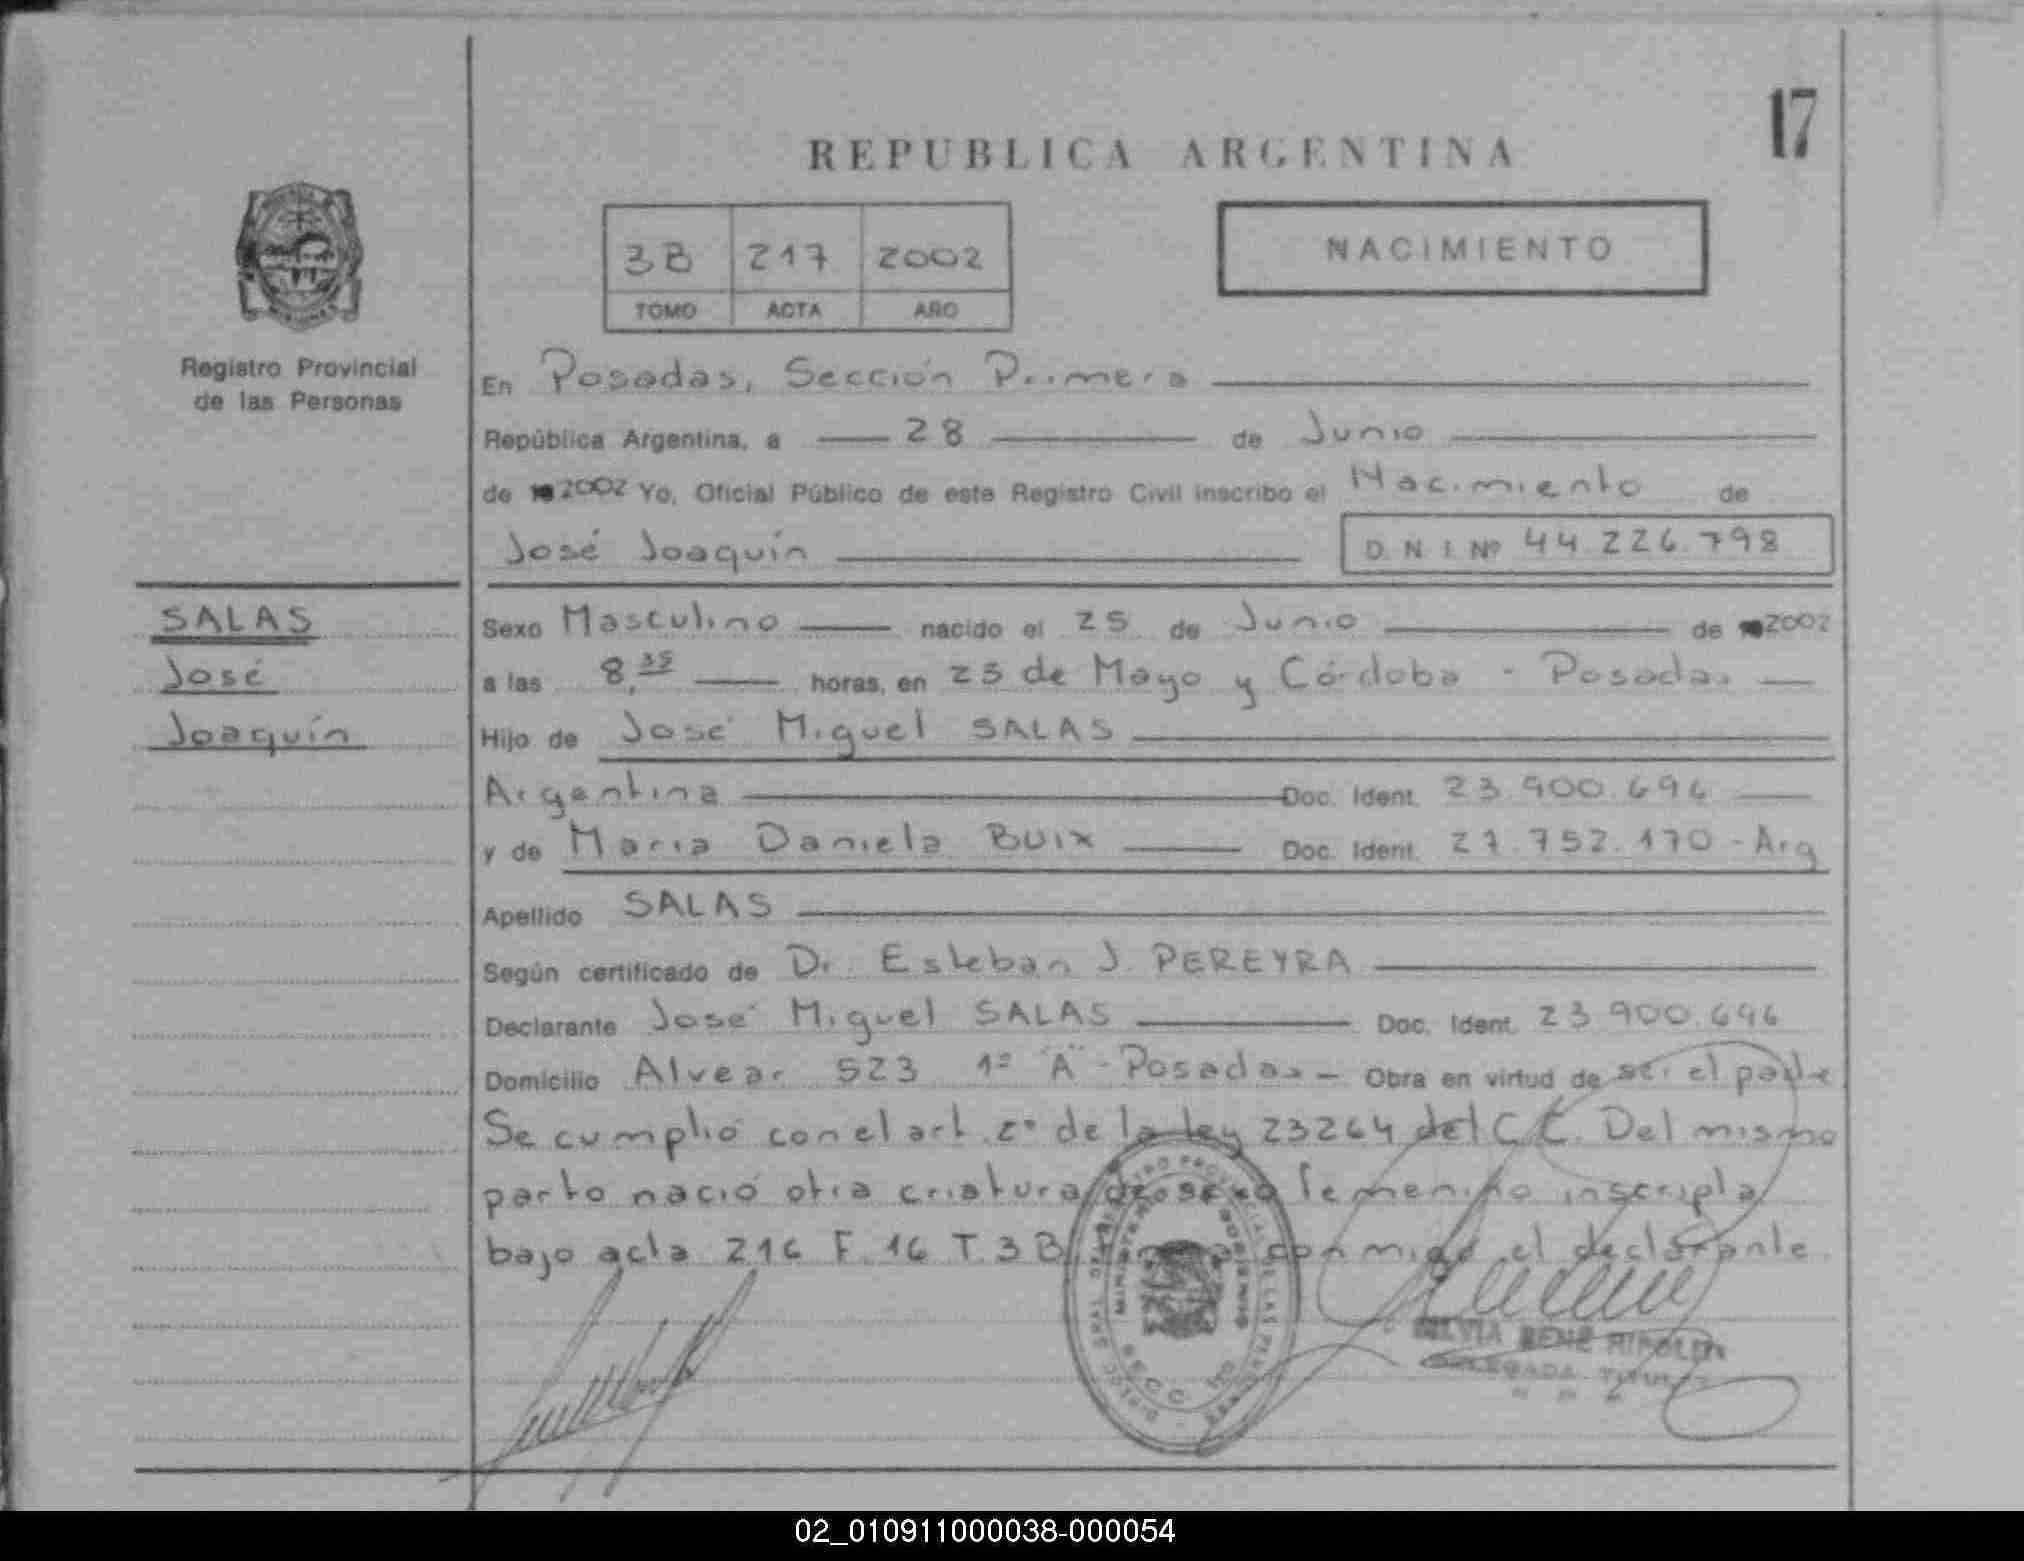 17
REPUBLICA ARGENTINA
3B 217 2002
TOMO ACTA AÑO
NACIMIENTO
Registro Provincial
de las Personas
En Posadas, Sección Primera
República Argentina, a 28 de Junio
de 2002 Yo, Oficial Público de este Registro Civil inscribo el Nacimiento de
José Joaquín D.N.I. Nº 44.226.798
SALAS
José
Joaquín
Sexo Masculino nacido el 25 de Junio de 2002
a las 8,35 horas, en 25 de Mayo y Córdoba - Posadas
Hijo de José Miguel SALAS
Argentina Doc. Ident. 23.900.696
y de María Daniela BUIX Doc. Ident. 27.752.170 - Arg
Apellido SALAS
Según certificado de Dr. Esteban J. PEREYRA
Declarante José Miguel SALAS Doc. Ident. 23.900.696
Domicilio Alvear 523 1º "A" - Posadas - Obra en virtud de ser el padre
Se cumplió con el art. 2º de la ley 23264 del C.C. Del mismo
parto nació otra criatura de sexo femenino inscripta
bajo acta 216 F. 16 T. 3B conmigo el declarante
SILVIA RENE
DELEGADA TITULAR
02_010911000038-000054